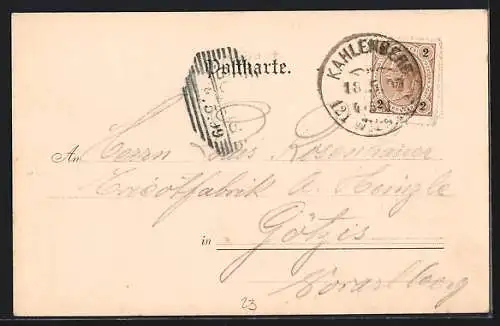 Postkarte.
KAHLENBERG
18.5.
2
2 2
An Herrn Louis Rosenhainer
Tricotfabrik A. Heingle
in Götzis
Vorarlberg
23